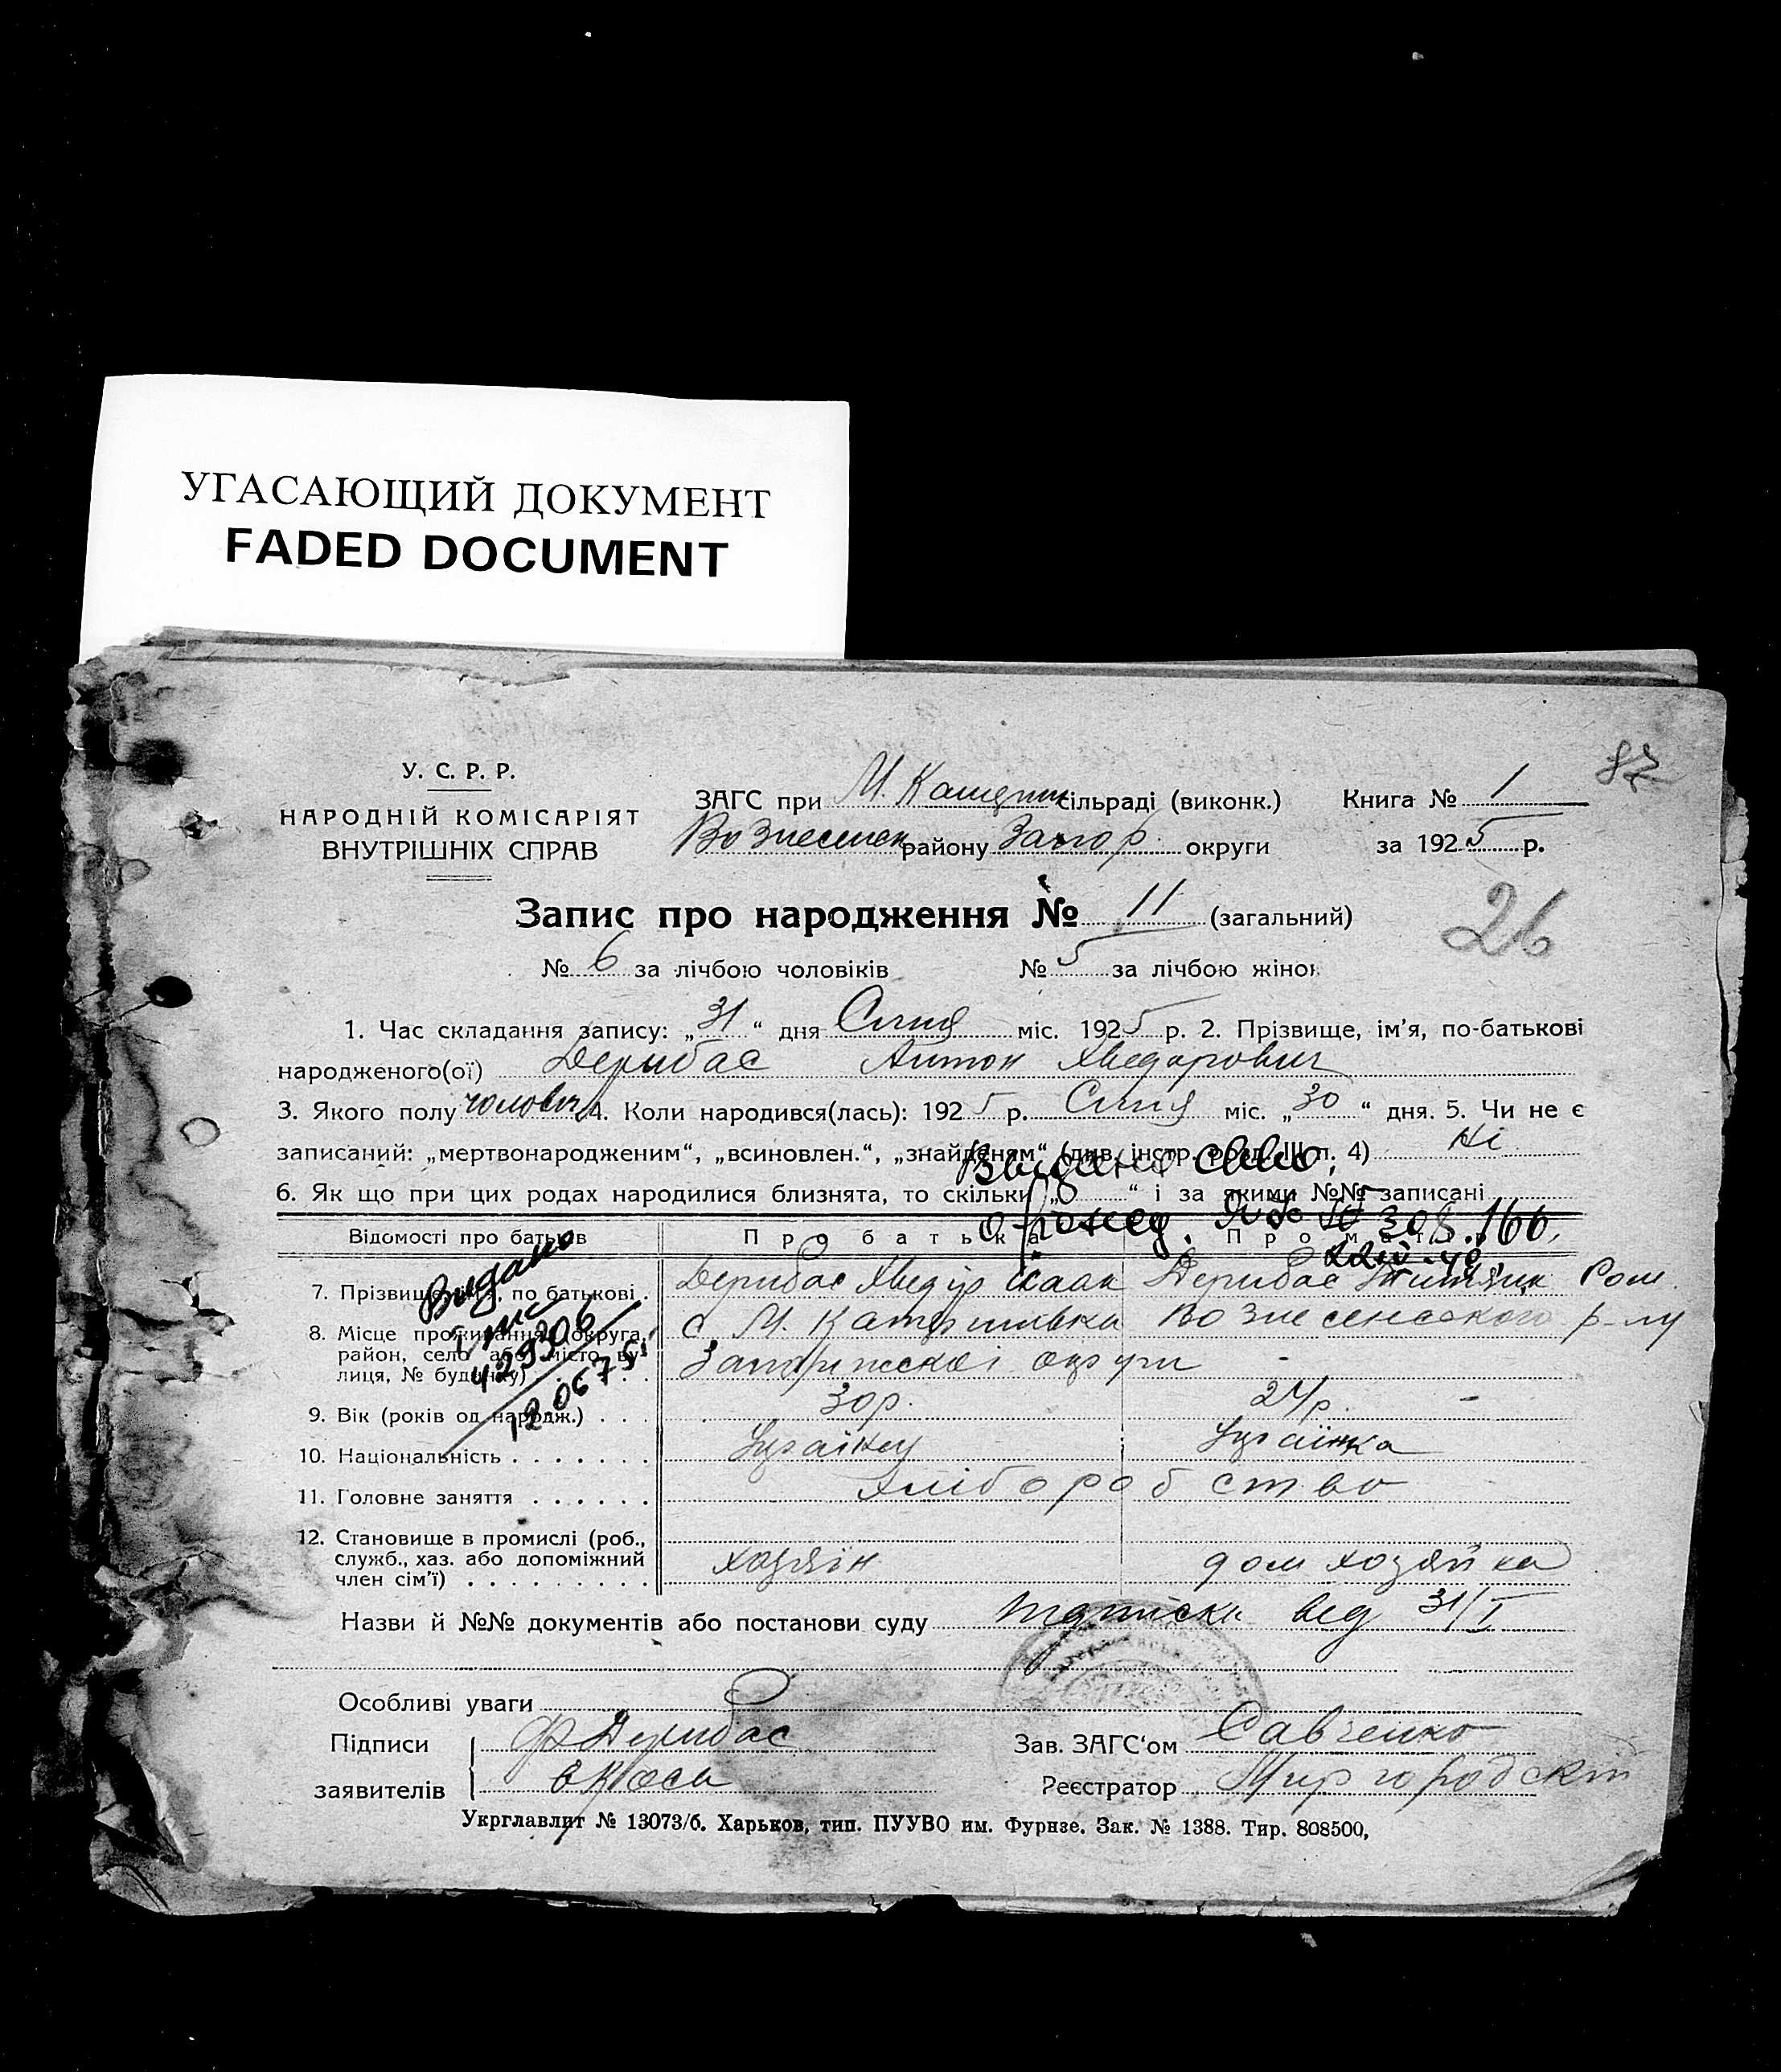 УГАСАЮЩИЙ ДОКУМЕНТ
FADED DOCUMENT
87
У. С. Р. Р.
НАРОДНІЙ КОМІСАРІЯТ
ВНУТРІШНІХ СПРАВ
ЗАГС при М. сільраді (виконк.) Книга № 1
району Запор. округи за 1925 р.
Запис про народження № 11 (загальний)
26
№ 6 за лічбою чоловіків № 5 за лічбою жінок
1. Час складання запису: „31“ дня Січня міс. 1925 р. 2. Прізвище, ім'я, по-батькові
народженого(ої) Дерибас Антон Хведорович
3. Якого полу чоловіч 4. Коли народився(лась): 1925 р. Січня міс. „30“ дня. 5. Чи не є
записаний: „мертвонародженим“, „всиновлен.“, „знайденям“ (див. інстр. розд. III п. 4) Ні
6. Як що при цих родах народилися близнята, то скільки „ “ і за якими №№ записані
Відомості про батьків Про батька Про матір
Видано
429306
12.06.75
7. Прізвище, ім'я, по батькові . Дерибас Хведір Дерибас Ром.
8. Місце проживання (округа, с. М. Катеринівка Вознесенського р-ну
район, село або місто ву- Запоріжскоі округи
лиця, № будинку)
9. Вік (років од народж.) . . . 30 р. 24 р. -
10. Національність . . . . . . . Українец Українка
11. Головне заняття . . . . . . Хліборобство
12. Становище в промислі (роб.,
служб., хаз. або допоміжний хозяін дом хозяйка
член сім'ї) . . . . . . . . .
Назви й №№ документів або постанови суду від 31/I
Особливі уваги
Підписи Ф Дерибас Зав. ЗАГС'ом Савченко
заявителів Реєстратор Миргородскій
Укрглавлит № 13073/б. Харьков, тип. ПУУВО им. Фурнзе. Зак. № 1388. Тир. 808500,